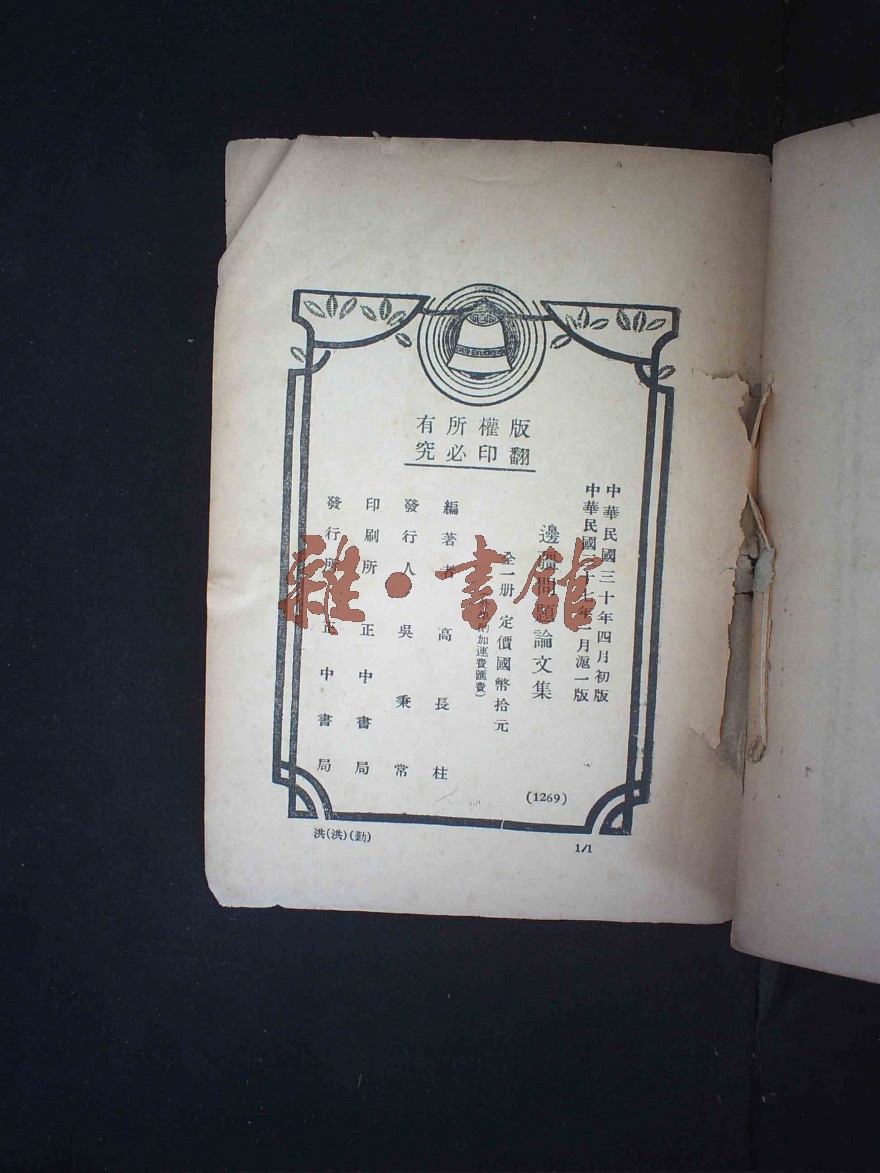 版權所有
翻印必究
中華民國三十年四月初版
中華民國三十七年一月滬一版
邊疆問題論文集
全一册 定價國幣拾元
加運費匯費)
編著者 高長柱
發行人 吳秉常
印刷所 正中書局
發行所 正中書局
(1269)
洪(洪)(勤)
1/1
雜·書館